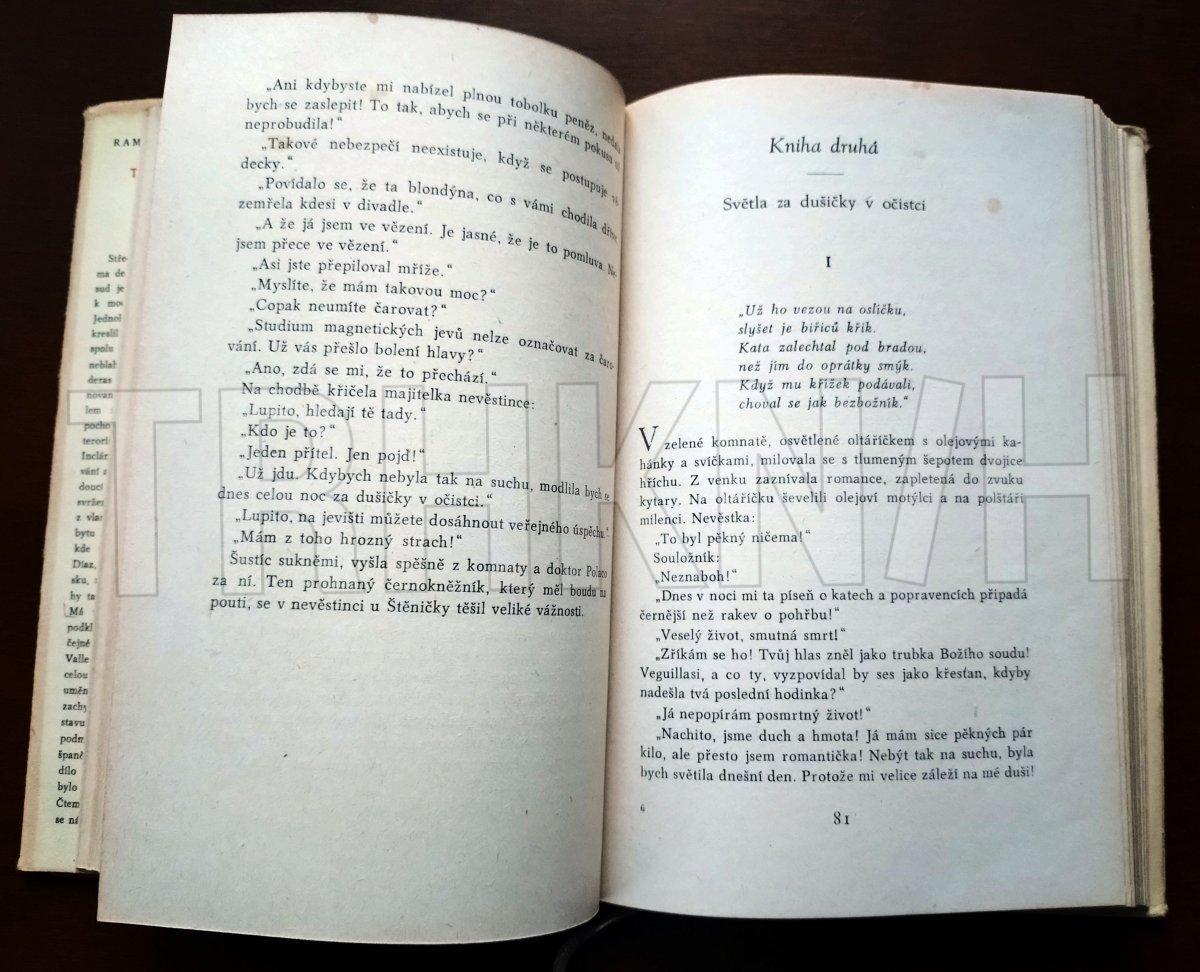 RAM
T
Stře-
ma de
sud je
k mo
Jednol
kreslil
spolu
neblah
deras
novan
lem
pocho
terori
Inclán
vání z
doucí
svržen
z vlas
bytu
kde
Díaz,
sku,
by ta
Má
podkl
čejné
Valle
celou
uměn
zachy
stavu
podm
španě
dílo
bylo
Čtem
se ná
„Ani kdybyste mi nabízel plnou tobolku peněz, nedala
bych se zaslepit! To tak, abych se při některém pokusu už
neprobudila!“
„Takové nebezpečí neexistuje, když se postupuje vě-
decky.“
„Povídalo se, že ta blondýna, co s vámi chodila dříve,
zemřela kdesi v divadle.“
„A že já jsem ve vězení. Je jasné, že je to pomluva. Ne-
jsem přece ve vězení.“
„Asi jste přepiloval mříže.“
„Myslíte, že mám takovou moc?“
„Copak neumíte čarovat?“
„Studium magnetických jevů nelze označovat za čaro-
vání. Už vás přešlo bolení hlavy?“
„Ano, zdá se mi, že to přechází.“
Na chodbě křičela majitelka nevěstince:
„Lupito, hledají tě tady.“
„Kdo je to?“
„Jeden přítel. Jen pojď!“
„Už jdu. Kdybych nebyla tak na suchu, modlila bych se
dnes celou noc za dušičky v očistci.“
„Lupito, na jevišti můžete dosáhnout veřejného úspěchu.“
„Mám z toho hrozný strach!“
Šustíc sukněmi, vyšla spěšně z komnaty a doktor Polaco
za ní. Ten prohnaný černokněžník, který měl boudu na
pouti, se v nevěstinci u Štěničky těšil veliké vážnosti.
Kniha druhá
Světla za dušičky v očistci
I
„Už ho vezou na oslíčku,
slyšet je biřiců křik.
Kata zalechtal pod bradou,
než jím do oprátky smýk.
Když mu křížek podávali,
choval se jak bezbožník.“
V zelené komnatě, osvětlené oltáříčkem s olejovými ka-
hánky a svíčkami, milovala se s tlumeným šepotem dvojice
hříchu. Z venku zaznívala romance, zapletená do zvuku
kytary. Na oltáříčku ševelili olejoví motýlci a na polštáři
milenci. Nevěstka:
„To byl pěkný ničema!“
Souložník:
„Neznaboh!“
„Dnes v noci mi ta píseň o katech a popravencích připadá
černější než rakev o pohřbu!“
„Veselý život, smutná smrt!“
„Zříkám se ho! Tvůj hlas zněl jako trubka Božího soudu!
Veguillasi, a co ty, vyzpovídal by ses jako křesťan, kdyby
nadešla tvá poslední hodinka?“
„Já nepopírám posmrtný život!“
„Nachito, jsme duch a hmota! Já mám sice pěkných pár
kilo, ale přesto jsem romantička! Nebýt tak na suchu, byla
bych světila dnešní den. Protože mi velice záleží na mé duši!
6
81
TRHKNIH